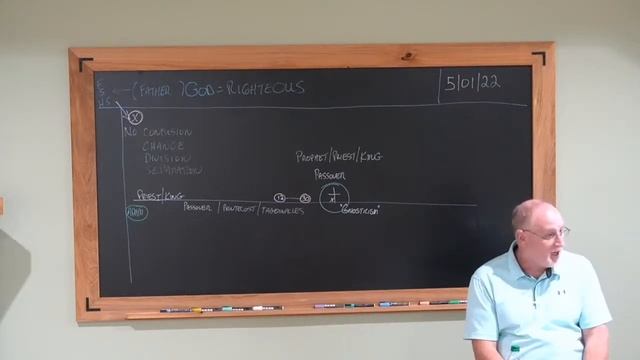 ← (FATHER) GOD = RIGHTEOUS
5/01/22
X
NO CONFUSION
CHANGE
DIVISION
SEPARATION
PROPHET/PRIEST/KING
PASSOVER
PRIEST/KING
12
30
PASSOVER / PENTECOST / TABERNACLES
"GNOSTICISM"